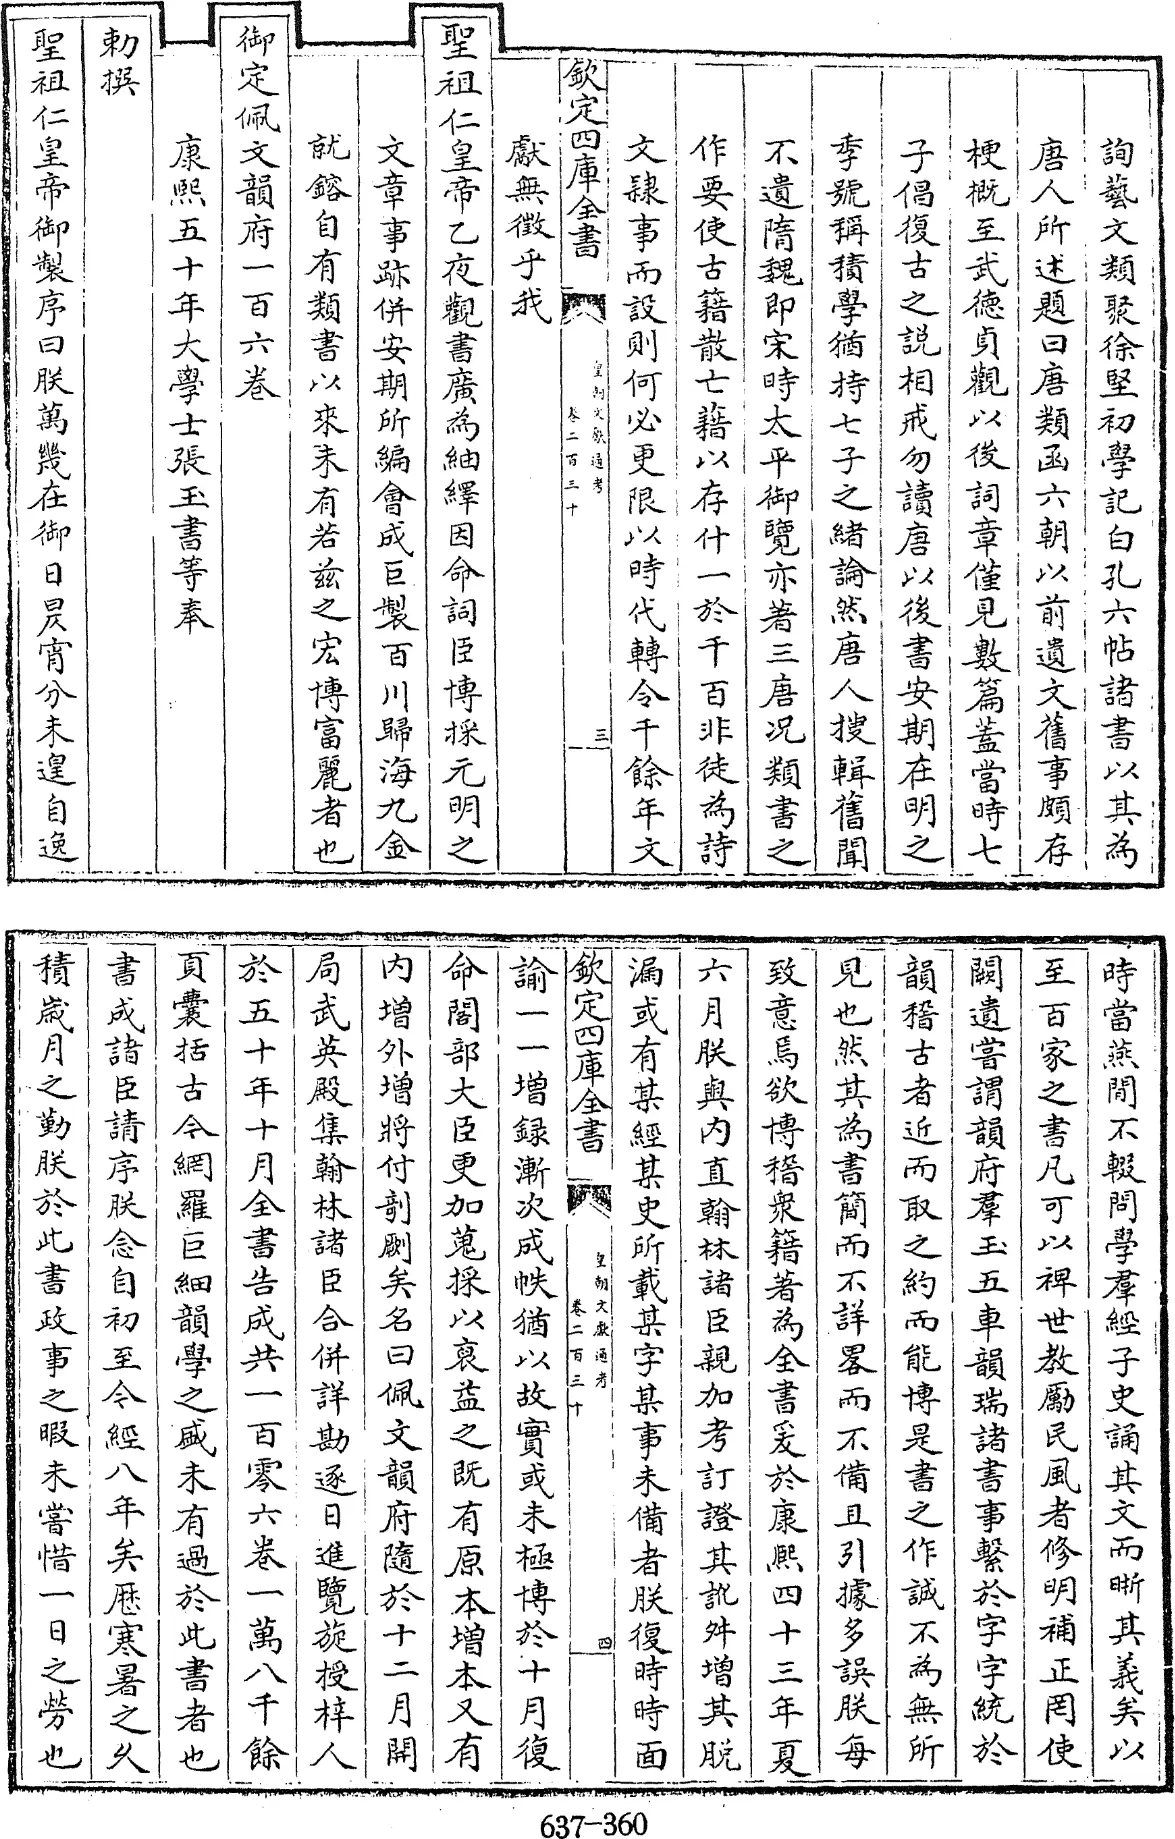 詢藝文類聚徐堅初學記白孔六帖諸書以其為
唐人所述題曰唐類函六朝以前遺文舊事頗存
梗概至武德貞觀以後詞章僅見數篇蓋當時七
子倡復古之説相戒勿讀唐以後書安期在明之
季號稱積學猶持七子之緒論然唐人搜輯舊聞
不遺隋魏即宋時太平御覽亦著三唐况類書之
作要使古籍散亡藉以存什一於千百非徒為詩
文隷事而設則何必更限以時代轉令千餘年文
欽定四庫全書
皇朝文獻通考
卷二百三十
三
獻無徵乎我
聖祖仁皇帝乙夜觀書廣為紬繹因命詞臣博採元明之
文章事跡併安期所編會成巨製百川歸海九金
就鎔自有類書以來未有若兹之宏博富麗者也
御定佩文韻府一百六卷
康熙五十年大學士張玉書等奉
勅撰
聖祖仁皇帝御製序曰朕萬幾在御日昃宵分未遑自逸
時當燕閒不輟問學羣經子史誦其文而晰其義矣以
至百家之書凡可以裨世教勵民風者修明補正罔使
闕遺嘗謂韻府羣玉五車韻瑞諸書事繫於字字統於
韻稽古者近而取之約而能博是書之作誠不為無所
見也然其為書簡而不詳畧而不備且引據多誤朕每
致意焉欲博稽衆籍著為全書爰於康熙四十三年夏
六月朕與内直翰林諸臣親加考訂證其訛舛增其脱
漏或有某經某史所載某字某事未備者朕復時時面
欽定四庫全書
皇朝文獻通考
卷二百三十
四
諭一一增録漸次成帙猶以故實或未極博於十月復
命閣部大臣更加蒐採以裒益之既有原本增本又有
内增外增將付剞劂矣名曰佩文韻府隨於十二月開
局武英殿集翰林諸臣合併詳勘逐日進覽旋授梓人
於五十年十月全書告成共一百零六卷一萬八千餘
頁囊括古今網羅巨細韻學之盛未有過於此書者也
書成諸臣請序朕念自初至今經八年矣歷寒暑之久
積嵗月之勤朕於此書政事之暇未嘗惜一日之勞也
637-360